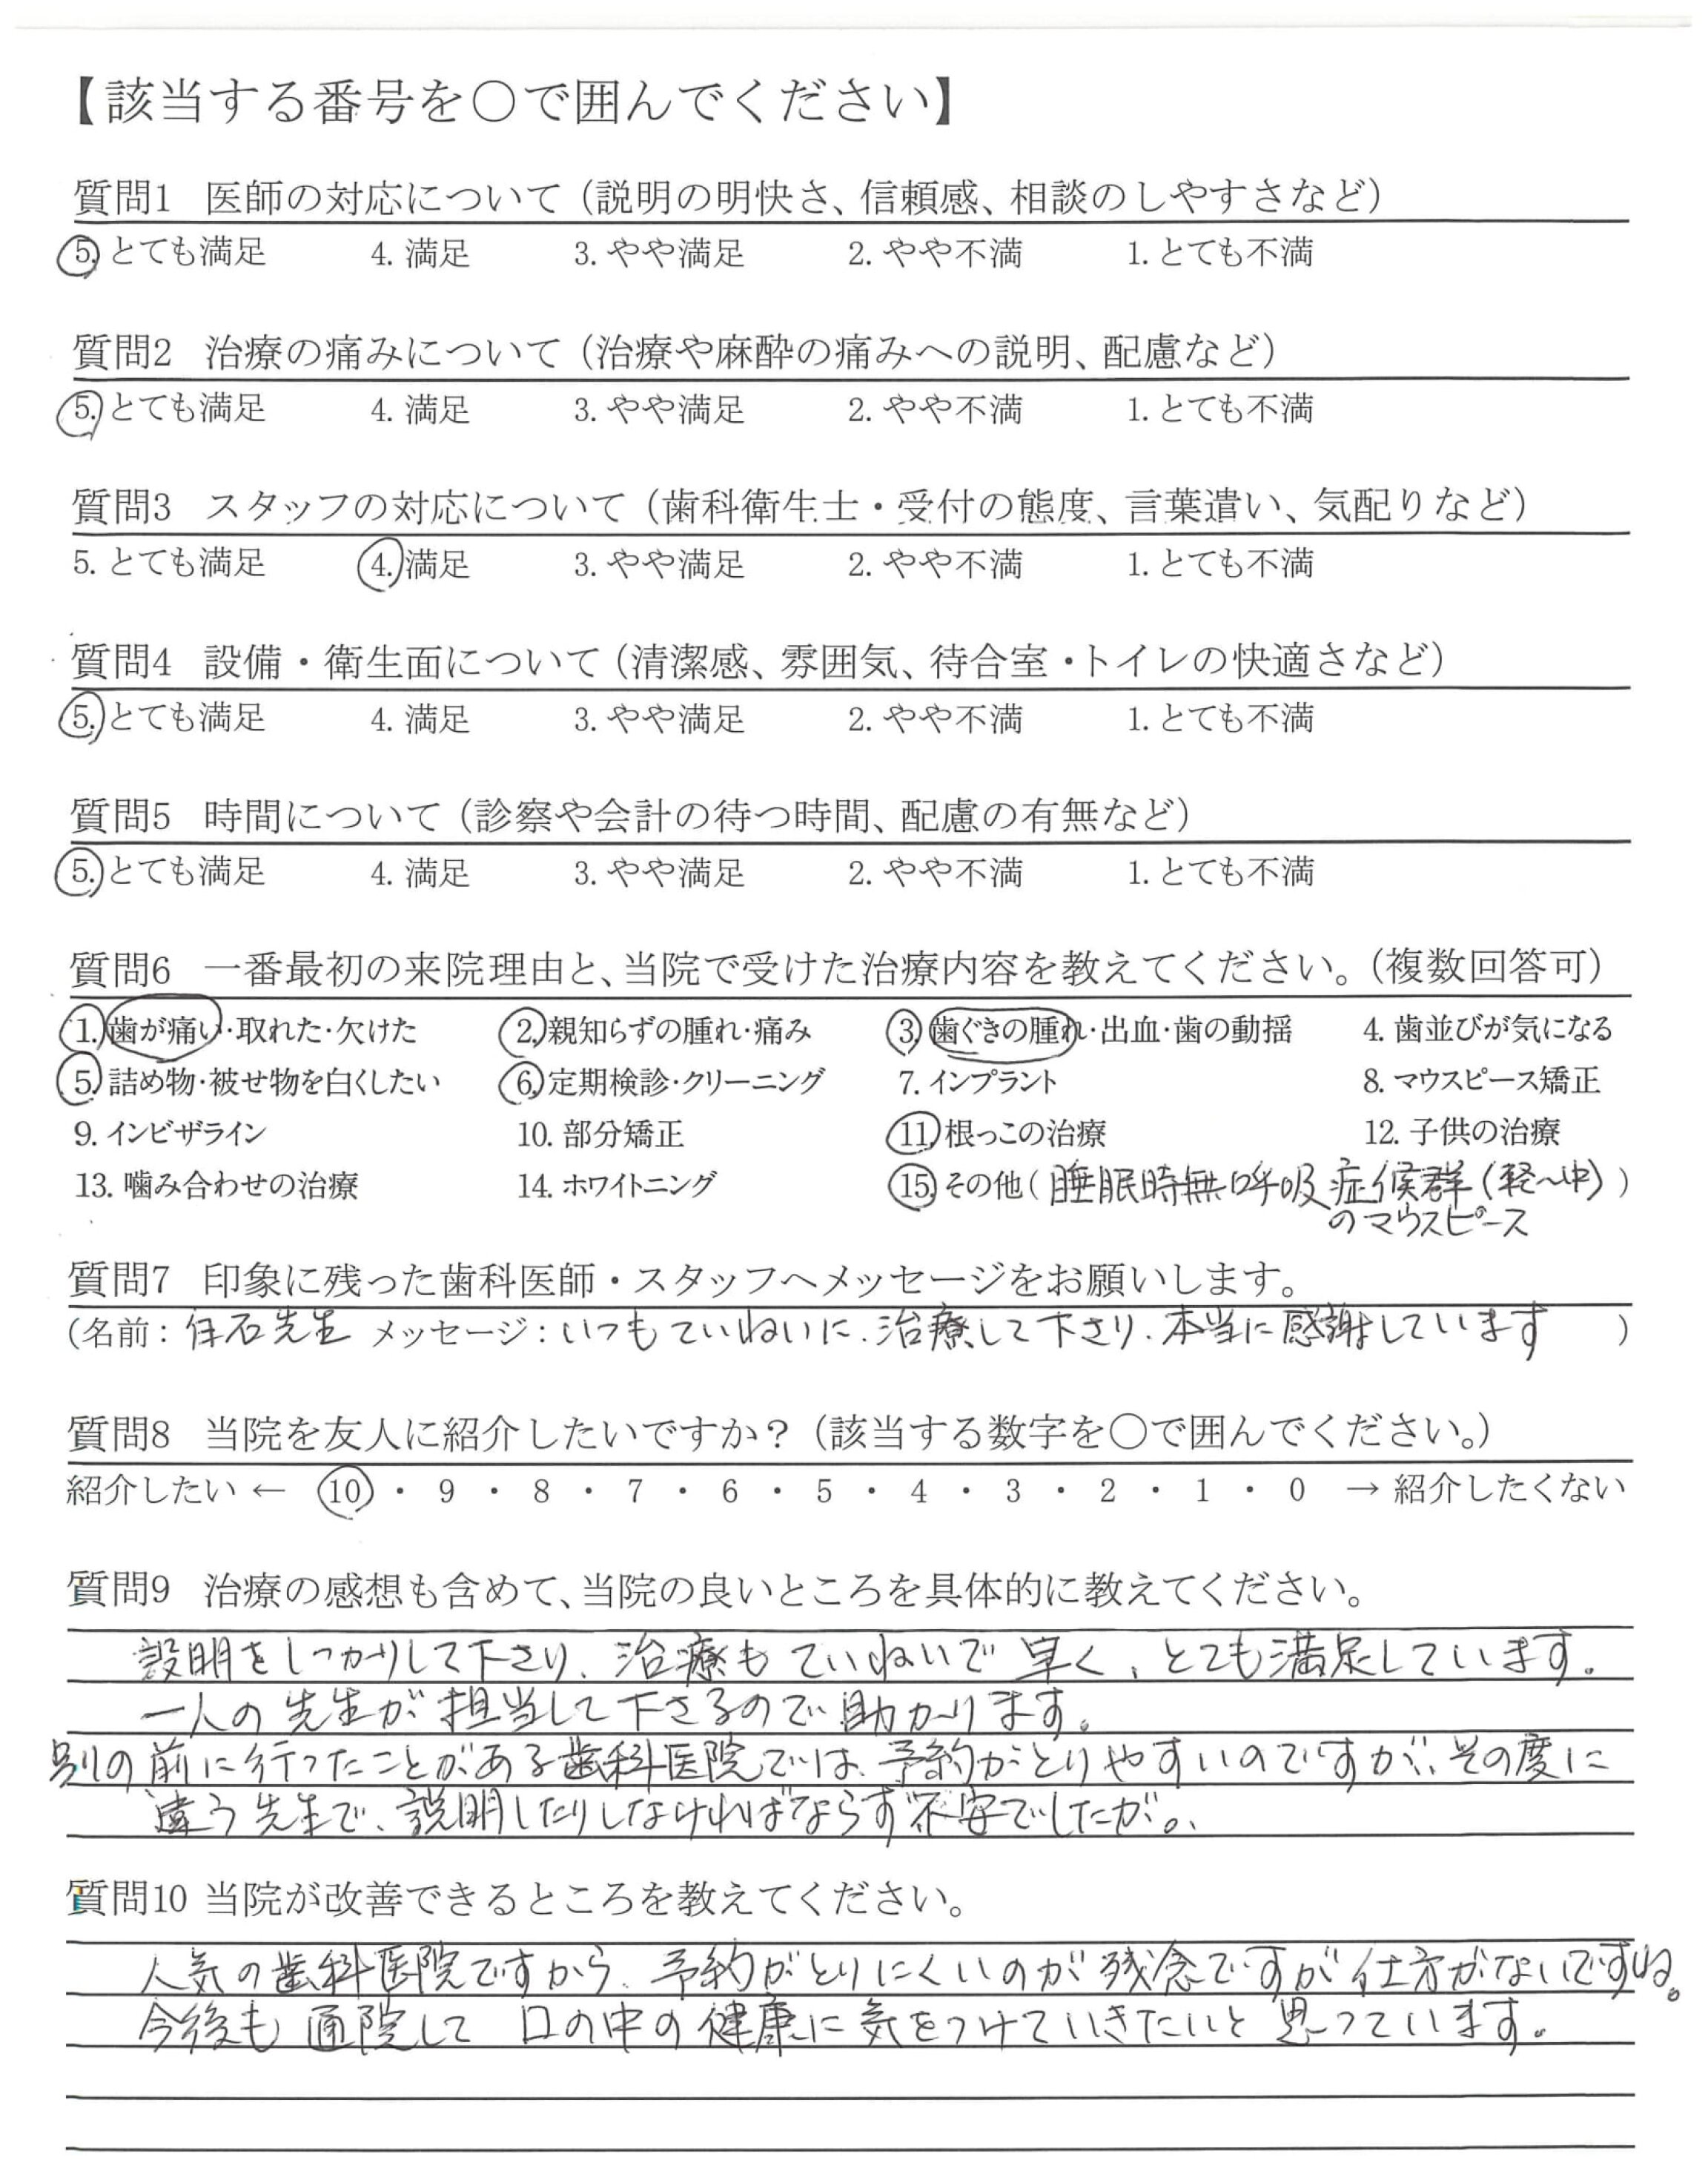 【該当する番号を〇で囲んでください】
質問1 医師の対応について（説明の明快さ、信頼感、相談のしやすさなど）
5. とても満足 4. 満足 3. やや満足 2. やや不満 1. とても不満
質問2 治療の痛みについて（治療や麻酔の痛みへの説明、配慮など）
5. とても満足 4. 満足 3. やや満足 2. やや不満 1. とても不満
質問3 スタッフの対応について（歯科衛生士・受付の態度、言葉遣い、気配りなど）
5. とても満足 4. 満足 3. やや満足 2. やや不満 1. とても不満
質問4 設備・衛生面について（清潔感、雰囲気、待合室・トイレの快適さなど）
5. とても満足 4. 満足 3. やや満足 2. やや不満 1. とても不満
質問5 時間について（診察や会計の待つ時間、配慮の有無など）
5. とても満足 4. 満足 3. やや満足 2. やや不満 1. とても不満
質問6 一番最初の来院理由と、当院で受けた治療内容を教えてください。（複数回答可）
1. 歯が痛い・取れた・欠けた 2. 親知らずの腫れ・痛み 3. 歯ぐきの腫れ・出血・歯の動揺 4. 歯並びが気になる
5. 詰め物・被せ物を白くしたい 6. 定期検診・クリーニング 7. インプラント 8. マウスピース矯正
9. インビザライン 10. 部分矯正 11. 根っこの治療 12. 子供の治療
13. 噛み合わせの治療 14. ホワイトニング 15. その他（睡眠時無呼吸症候群（軽〜中））
のマウスピース
質問7 印象に残った歯科医師・スタッフへメッセージをお願いします。
（名前：石先生 メッセージ：いつもていねいに、治療して下さり、本当に感謝しています）
質問8 当院を友人に紹介したいですか？（該当する数字を〇で囲んでください。）
紹介したい ← 10 ・ 9 ・ 8 ・ 7 ・ 6 ・ 5 ・ 4 ・ 3 ・ 2 ・ 1 ・ 0 → 紹介したくない
質問9 治療の感想も含めて、当院の良いところを具体的に教えてください。
説明をしっかりして下さり、治療もていねいで早く、とても満足しています。
一人の先生が担当して下さるので助かります。
別の前に行ったことがある歯科医院では、予約がとりやすいのですが、その度に
違う先生で、説明したりしなければならず不安でしたが。、
質問10 当院が改善できるところを教えてください。
人気の歯科医院ですから、予約がとりにくいのが残念ですが仕方がないですね。
今後も通院して口の中の健康に気をつけていきたいと思っています。